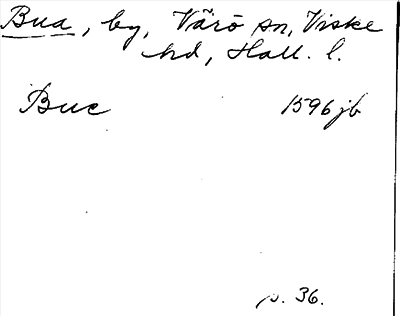 Bua, by, Värö sn, Viske
hd, Hall. l.
Bue 1596 jb
p. 36.